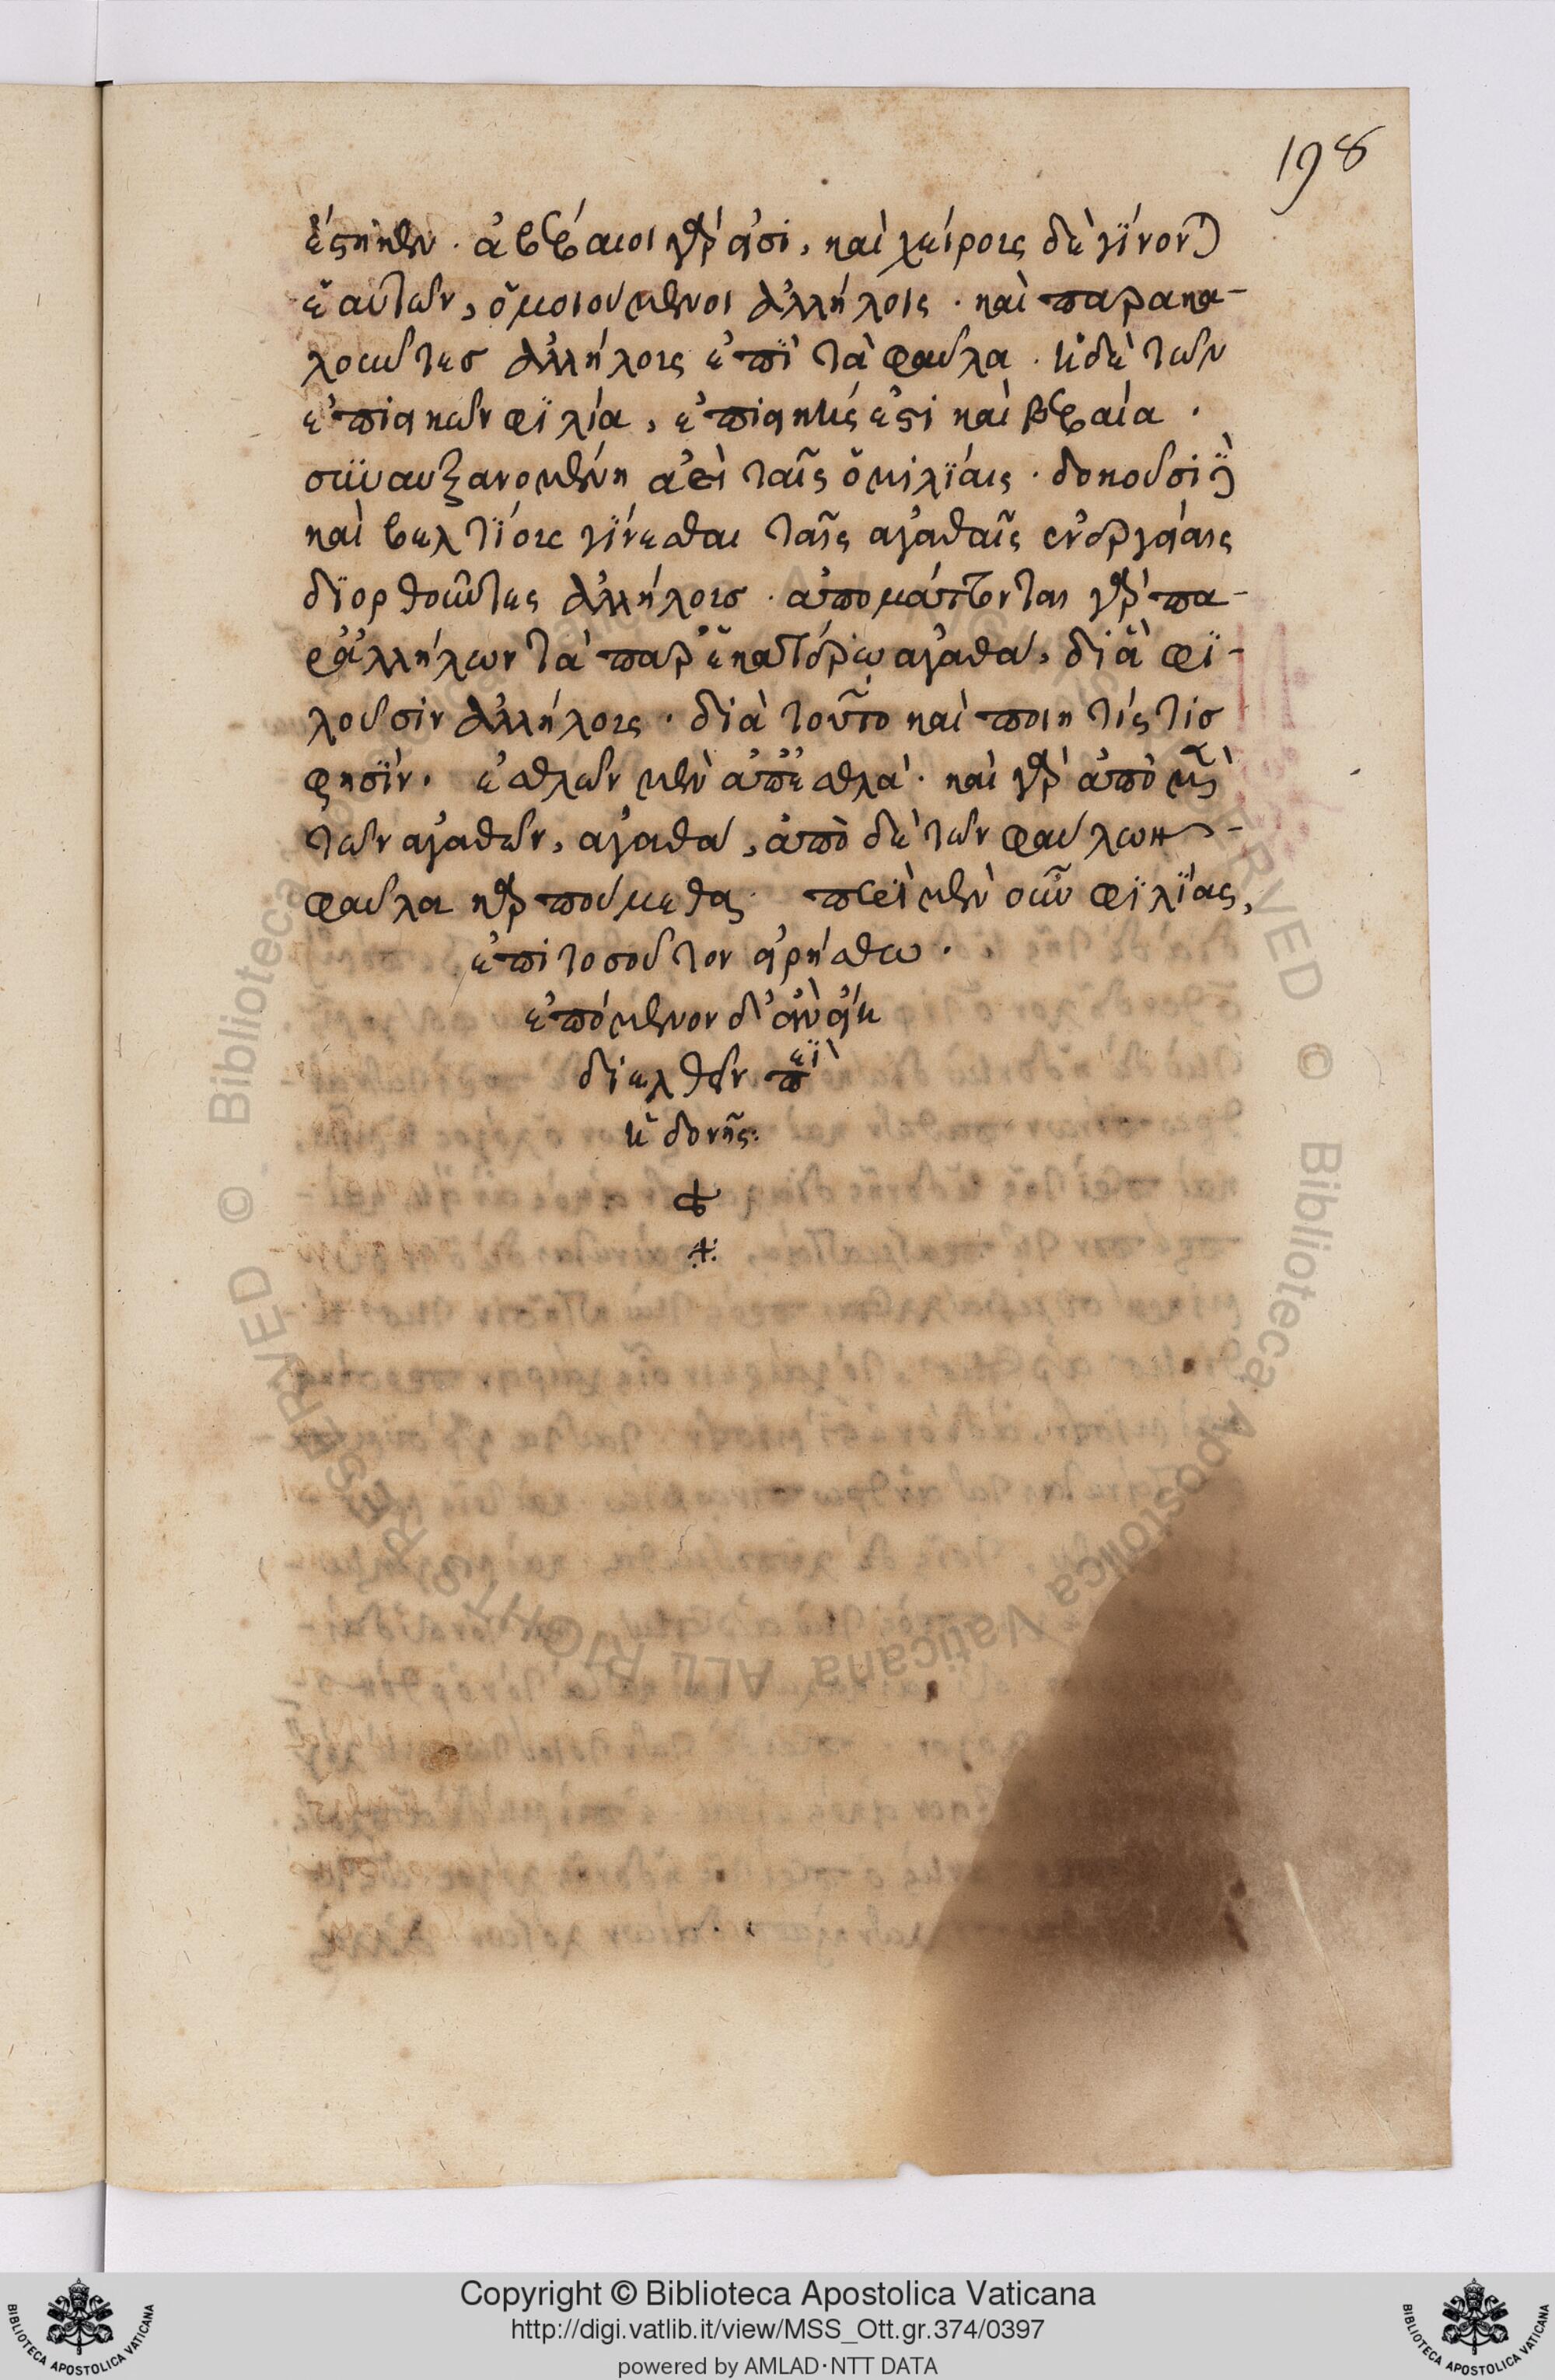 198
ἐστι μέν. ἀβέβαιοι γάρ εἰσι, καὶ χείρους δὲ γίνονται
ἑαυτῶν, ὁμοιούμενοι ἀλλήλοις. καὶ παρακα-
λοῦντες ἀλλήλους ἐπὶ τὰ φαῦλα. ἡ δὲ τῶν
ἐπιεικῶν φιλία, ἐπιεικής ἐστι καὶ βεβαία.
συναυξανομένη ἀεὶ ταῖς ὁμιλίαις. δοκοῦσι δὲ
καὶ βελτίους γίνεσθαι ταῖς ἀγαθαῖς ἐνεργείαις
διορθοῦντες ἀλλήλους. ἀπομάττονται γὰρ πα-
ρ᾽ἀλλήλων τὰ παρ᾽ἑκατέρῳ ἀγαθά, δι᾽ ἃ φι-
λοῦσιν ἀλλήλους. διὰ τοῦτο καὶ ποιητής τις
φησίν. ἐσθλῶν μὲν ἀπ᾽ ἐσθλά. καὶ γὰρ ἀπὸ μὲν
τῶν ἀγαθῶν, ἀγαθά, ἀπὸ δὲ τῶν φαύλων
φαῦλα καρπούμεθα. περὶ μὲν οὖν φιλίας,
ἐπὶ τοσοῦτον εἰρήσθω.
ἑπόμενον δ᾽ ἂν εἴη
διελθεῖν περὶ
ἡδονῆς:
Copyright © Biblioteca Apostolica Vaticana
http://digi.vatlib.it/view/MSS_Ott.gr.374/0397
powered by AMLAD·NTT DATA
BIBLIOTECA APOSTOLICA VATICANA
BIBLIOTECA APOSTOLICA VATICANA
© Biblioteca Apostolica Vaticana ALL RIGHTS RESERVED